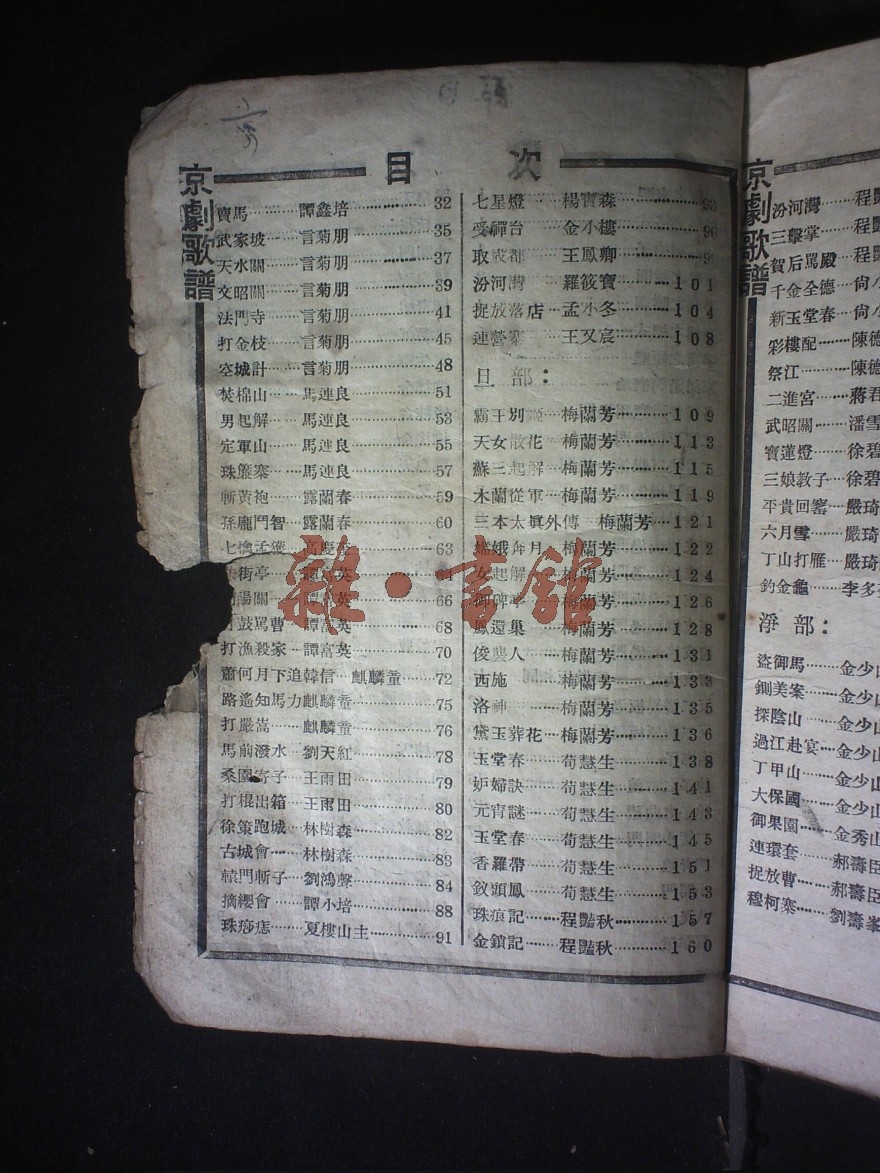 目次
京劇歌譜
賣馬……譚鑫培……32
武家坡……言菊朋……35
天水關……言菊朋……37
文昭關……言菊朋……39
法門寺……言菊朋……41
打金枝……言菊朋……45
空城計……言菊朋……48
焚棉山……馬連良……51
男起解……馬連良……53
定軍山……馬連良……55
珠簾寨……馬連良……57
斬黃袍……露蘭春……59
孫龐鬥智……露蘭春……60
七擒孟獲……高慶奎……63
街亭……譚富英
陽關……譚富英……66
鼓罵曹……譚富英……68
打漁殺家……譚富英……70
蕭何月下追韓信……麒麟童……72
路遙知馬力……麒麟童……75
打嚴嵩……麒麟童……76
馬前潑水……劉天紅……78
桑園寄子……王雨田……79
打棍出箱……王雨田……80
徐策跑城……林樹森……82
古城會……林樹森……83
轅門斬子……劉鴻聲……84
摘纓會……譚小培……88
珠痧痣……夏樓山主……91
七星燈……楊寶森……93
受禪台……金小樓……96
取成都……王鳳卿
汾河灣……羅筱寶……101
捉放落店……孟小冬……104
連營寨……王又宸……108
旦部：
霸王別姬……梅蘭芳……109
天女散花……梅蘭芳……113
蘇三起解……梅蘭芳……115
木蘭從軍……梅蘭芳……119
三本太眞外傳……梅蘭芳……121
嫦娥奔月……梅蘭芳……122
女起解……梅蘭芳……124
御碑亭……梅蘭芳……126
鳳還巢……梅蘭芳……128
俊襲人……梅蘭芳……131
西施……梅蘭芳……133
洛神……梅蘭芳……135
黛玉葬花……梅蘭芳……136
玉堂春……荀慧生……138
妒婦訣……荀慧生……141
元宵謎……荀慧生……143
玉堂春……荀慧生……145
香羅帶……荀慧生……151
釵頭鳳……荀慧生……153
珠痕記……程豔秋……157
金鎖記……程豔秋……160
京劇歌譜
汾河灣……程豔
三擊掌……程豔
賀后罵殿……程豔
千金全德……尙小
新玉堂春……尙小
彩樓配……陳德
祭江……陳德
二進宮……蔣君
武昭關……潘雪
寶蓮燈……徐碧
三娘敎子……徐碧
平貴回窰……嚴琦
六月雪……嚴琦
丁山打雁……嚴琦
釣金龜……李多
淨部：
盜御馬……金少山
鍘美案……金少山
探陰山……金少山
過江赴宴……金少山
丁甲山……金少山
大保國……金少山
御果園……金秀山
連環套……郝壽臣
捉放曹……郝壽臣
穆柯寨……劉壽峯
雜·書館